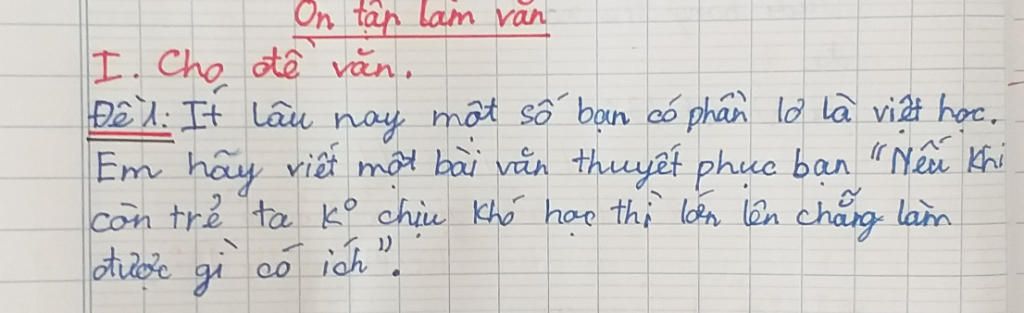 Ôn tập làm văn
I. Cho đề văn.
Đề 1: Ít lâu nay một số bạn có phần lơ là việt học.
Em hãy viết một bài văn thuyết phục bạn "Nếu khi
còn trẻ ta kº chịu khó học thì lớn lên chẵng làm
được gì có ích".